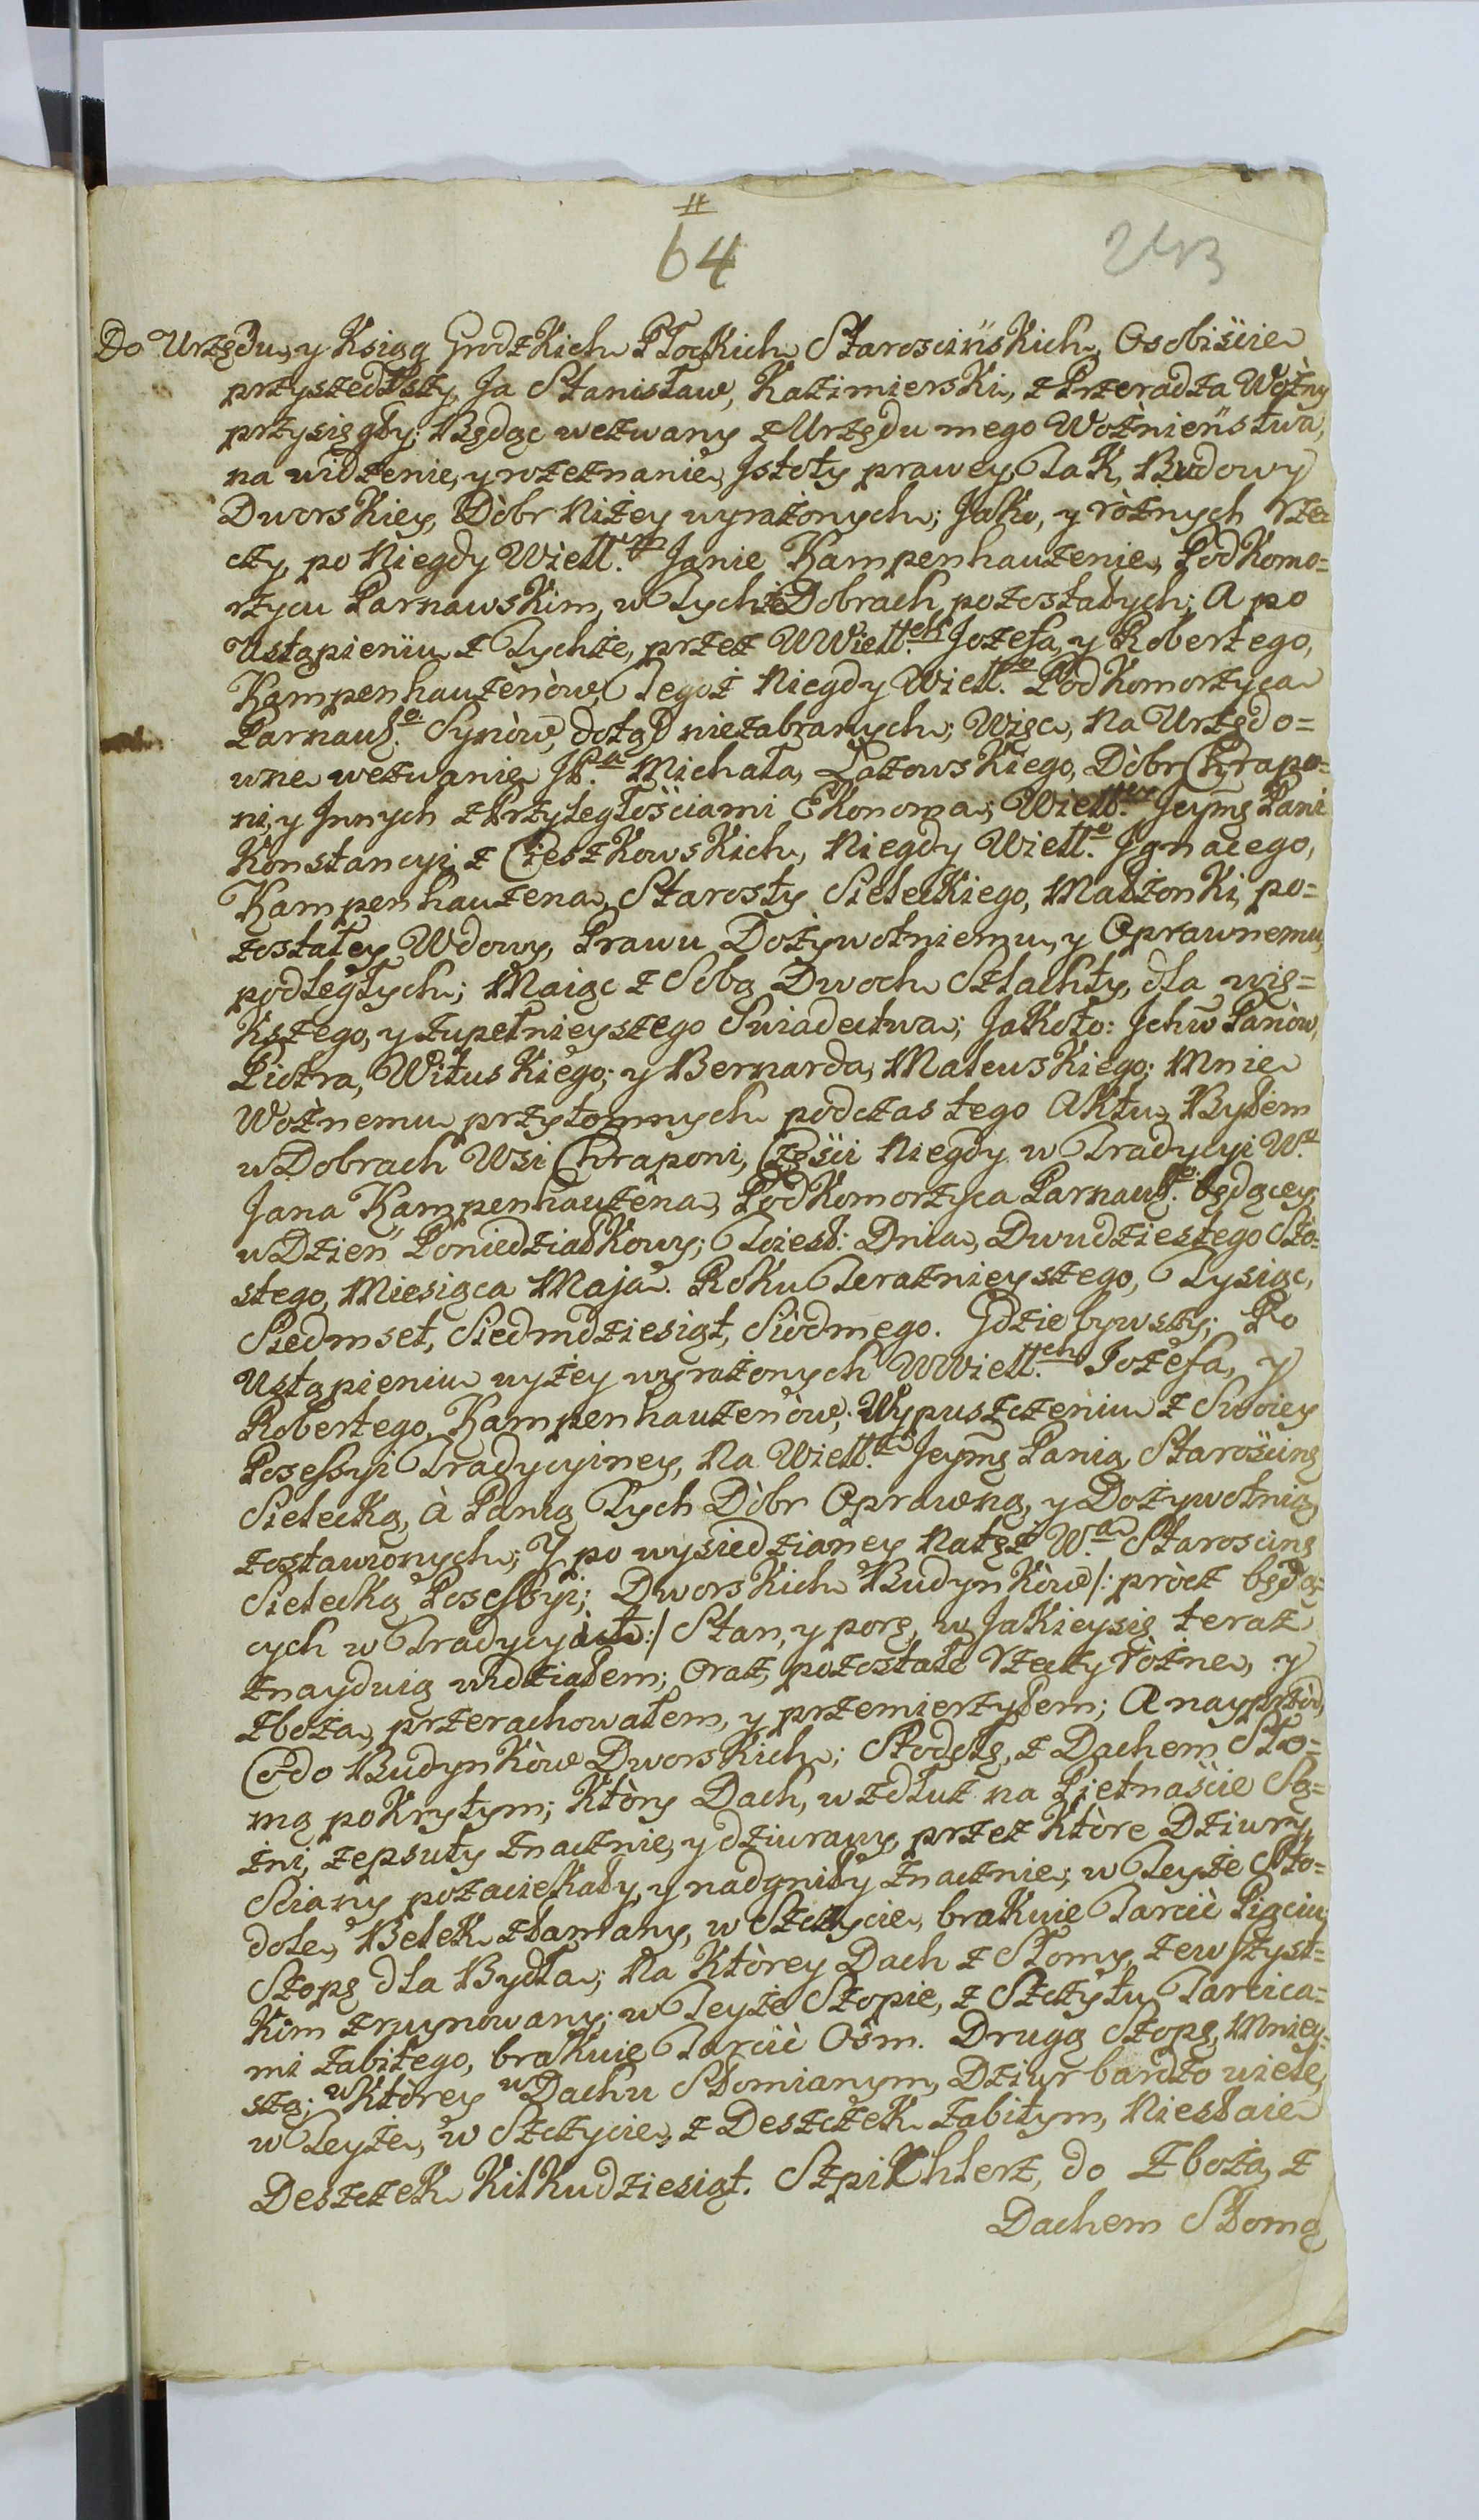 #
64
Do Urzędu, y Ksiąg Grodzkich Płockich Staroscińskich, Osobiście
przyszedłszy, Ja Stanisław, Kazimierski, z Przeradza Woźny
przysięgły; Będąc wezwany z Urzędu mego Woźnieństwa,
na widzenie, y rozeznanie, Jstoty prawey, Tak, Budowy
Dworskiey, Dòbr Niżey wyrażonych; Jako, y ròżnych rze
czy, po Niegdy Wiell. Janie Kampenhauzenie, Podkomo=
rzycu Parnawskim, w Tychże Dobrach, pozostałych; A po
Ustąpieniu z Tychże, przez WWiell.ch Jozefa, y Robertego,
Kampenhauzenòw, Tegoż Niegdy Wiell.o Podkomorzyca
Parnaws.o Synòw, dotąd niezabranych; Więc, Na Urzędo=
wne wezwanie JP.a Michała, Łazowskiego, Dòbr Chrapo=
ni, y Jnnych z Przyległościami Ekonoma; Wiell.ey Jeymę Pani
Konstancyi, z Cieszkowskich, Niegdy Wiell.o Jgnacego,
Kampenhauzena, Starosty Sieleckiego, Małżonki, po=
zostałey Wdowy, Prawu Dożywotniemu, y Oprawnemu,
podległych; Maiąc z Sobą Dwoch Szlachty, dla wię=
kszego, y zupełnieyszego Swiadectwa; Jakoto: Jchw Panòw,
Piotra, Wituskiego; y Bernarda, Mateuskiego; Mnie
Woźnemu przytomnych podczas tego Aktu, Byłem
w Dobrach Wsi Chraponi, Części Niegdy w Tradycyi W.
Jana Kampenhauzena, Podkomorzyca Parnaws.o będącey,
w Dzień Poniedziałkowy; Toiest: Dnia, Dwudziestego Szo=
stego, Miesiąca Maja. Roku Teraznieyszego, Tysiąc,
Siedmset, Siedmdziesiąt, Siòdmego. Gdzie bywszy; Po
Ustąpieniu wyżey wyrażonych WWiell.ch Jozefa, y
Robertego, Kampenhauzenòw; Wypuszczeniu z Swoiey
Posessyi Tradycyiney, Na Wiell.ą Jeymę Panią, Starościnę
Sielecką, à Panią Tych Dòbr Oprawną, y Dożywotnią
zostawionych; Y po wysiedzianey Natęż W.ą Staroscinę
Sielecką Posessyi; Dworskich Budynkòw /: pròcz będą=
cych w Tradycyach :/ Stan, y porę, w Jakieysię teraz
znayduią widziałem; Oraz, pozostałe rzeczy ròżne, y
zboża, przerachowałem, y przemierzyłem; A nayprzòd,
Codo Budynkòw Dworskich; Stodołę, z Dachem Sło=
mą pokrytym; Ktòry Dach, wzdłuż na Piętnaście Są=
żni, zepsuty znacznie, y dziurawy, przez Ktòre Dziury,
Sciany pozaciekały, y nadgniły znacznie; w Teyże Sto=
dole, Belek złamany, w Szczycie, brakuie Tarcic Pięciu;
Szopę dla Bydła; Na Ktòrey Dach z Słomy, zewszyst=
kim zruynowany; w Teyże Szopie, z Szczytu Tarcica=
mi zabitego, brakuie Tarcic Osm. Drugą Szopę, Mniey=
szą; w Ktòrey w Dachu Słomianym, Dziur bardzo wiele,
w Teyże, w Szczycie, z Deszczek zabitym, Niestaie
Deszczek Kilkudziesiąt. Szpikhlerz, do Zboża, z
Dachem Słomą